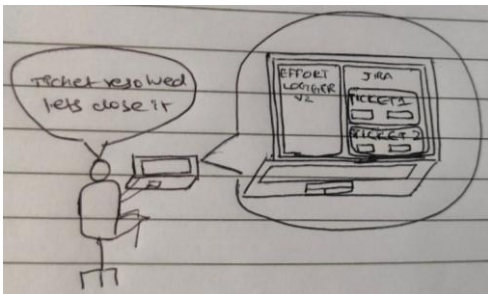 Ticket resolved
lets close it
EFFORT
LOGGER
V2
JIRA
TICKET 1
TICKET 2